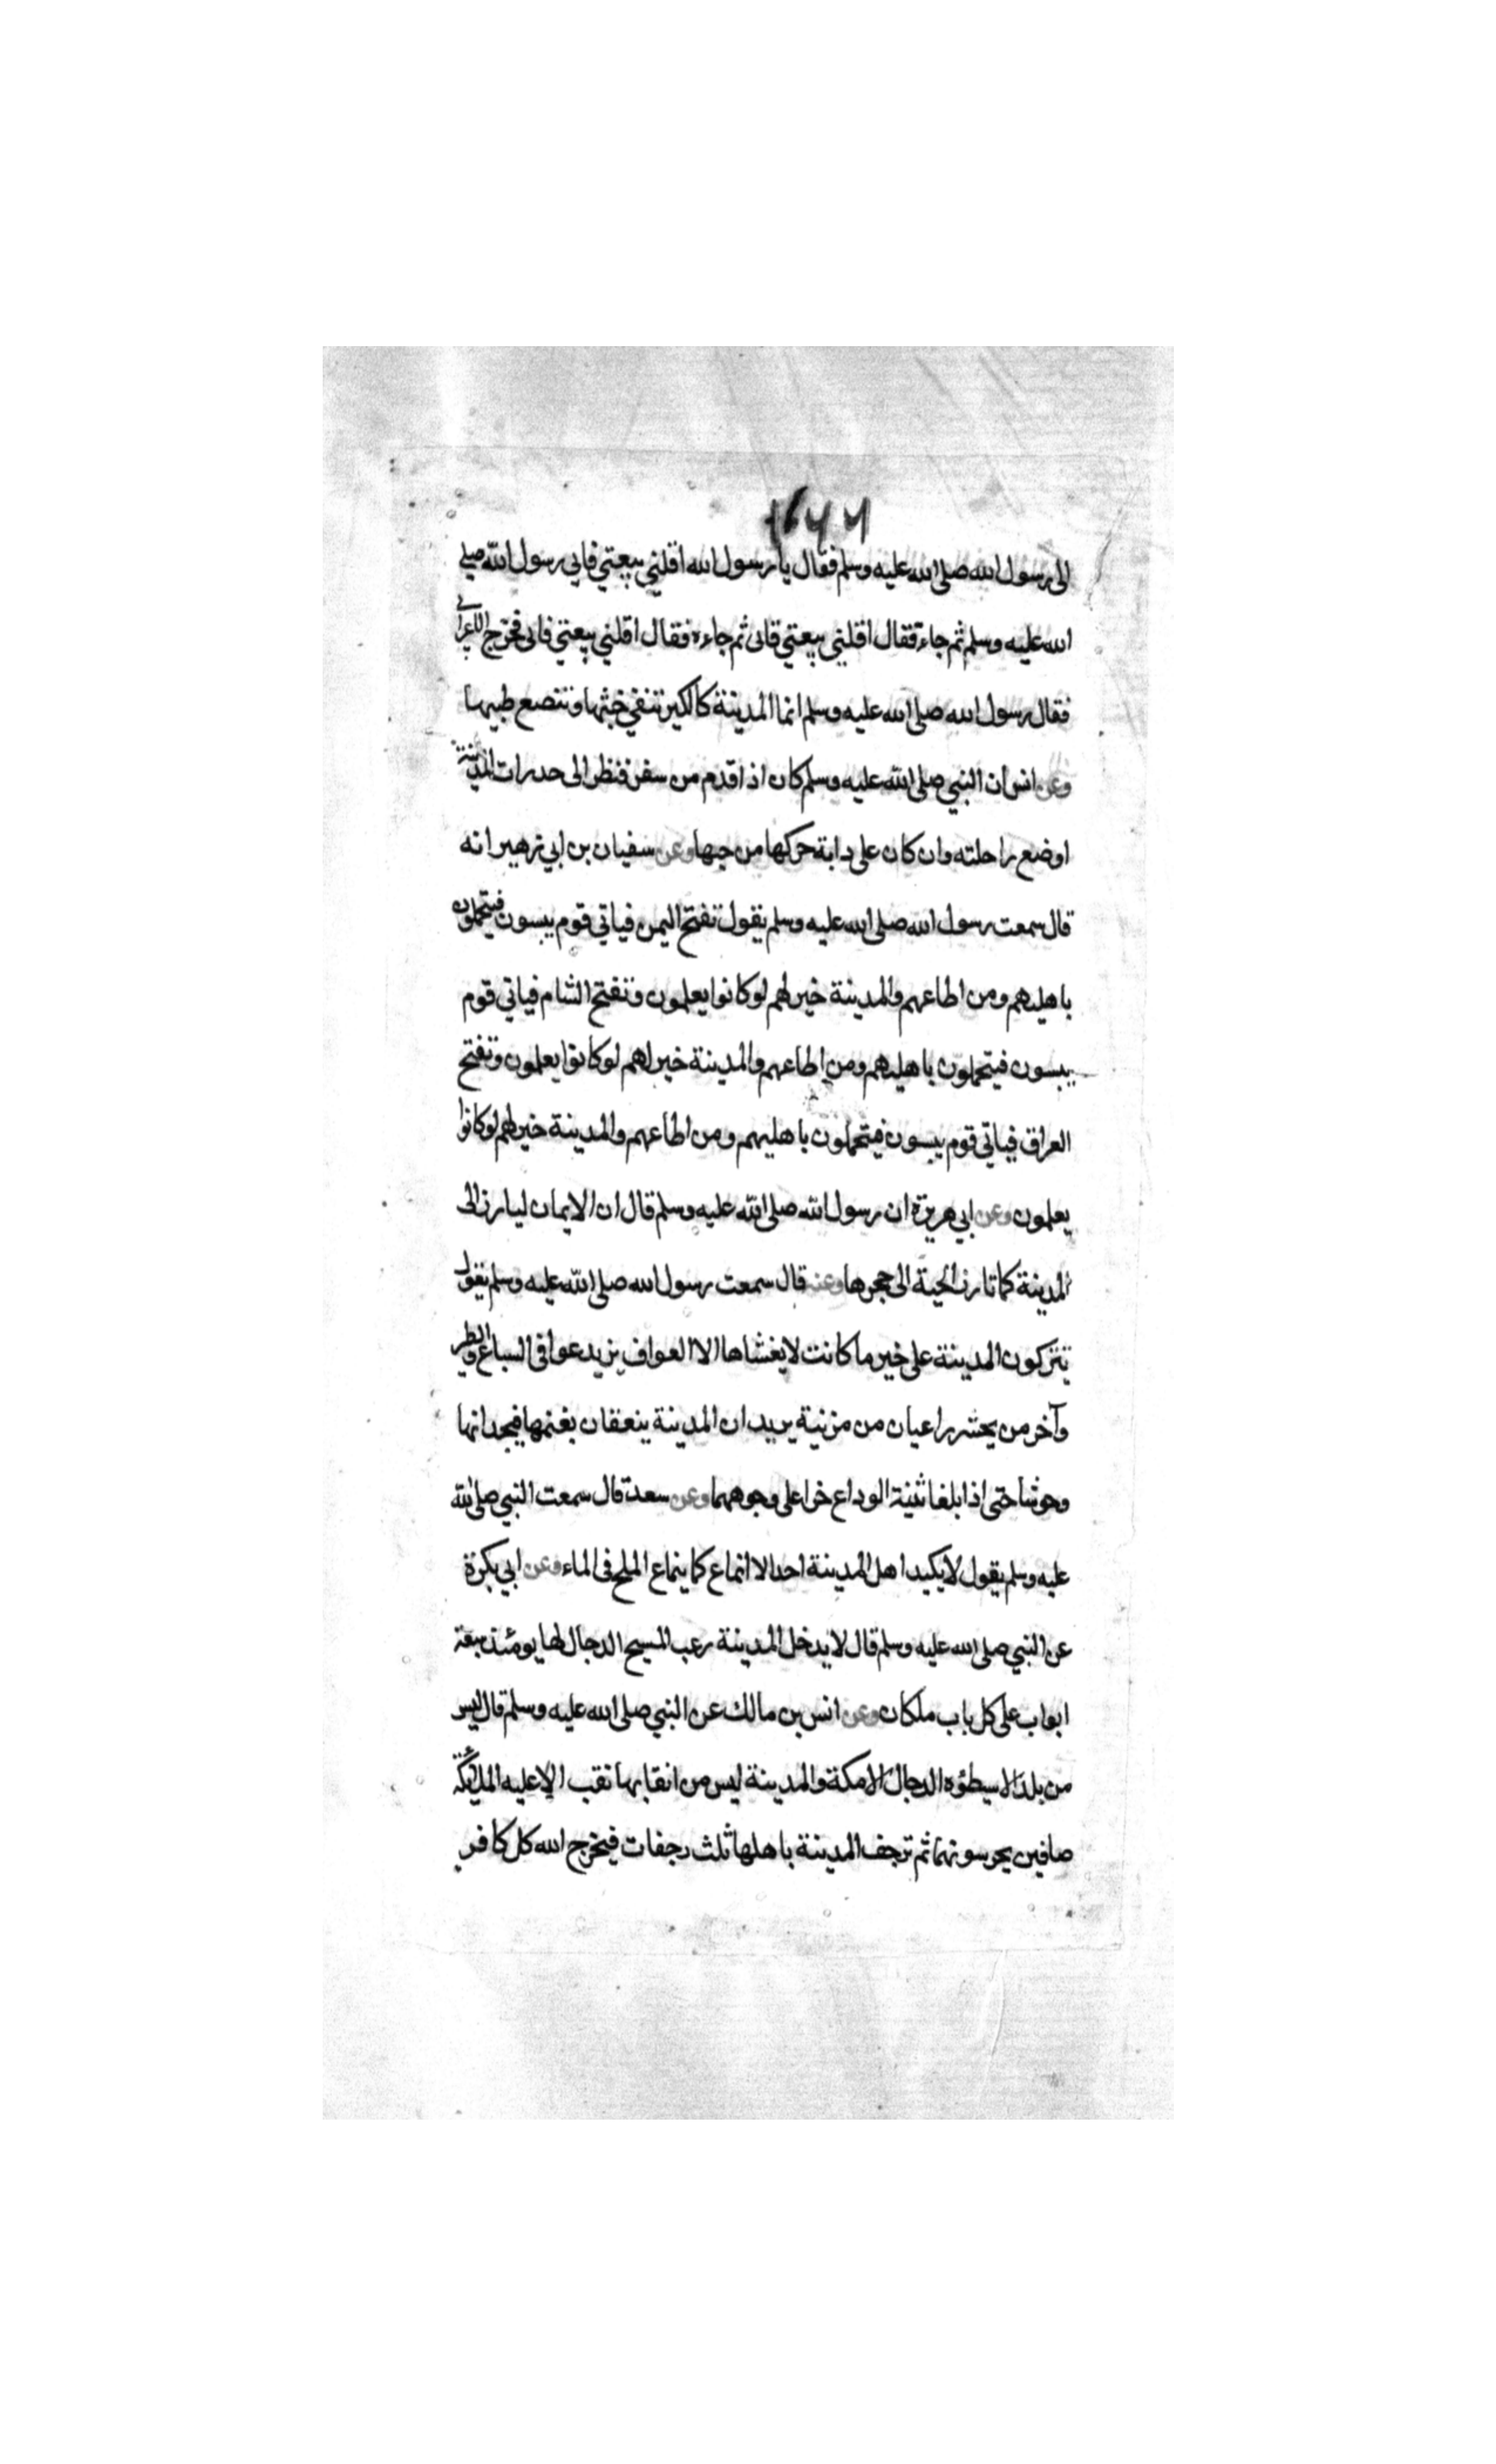 الى رسول الله صلى الله عليه وسلم فقال يا رسول الله اقلني بيعتي فابى رسول الله صلى
الله عليه وسلم ثم جاءه فقال اقلني بيعتي فابى ثم جاءه فقال اقلني بيعتي فابى فخرج الاعرابي
فقال رسول الله صلى الله عليه وسلم انما المدينة كالكير تنفي خبثها وتنصع طيبها
وعن انس ان النبي صلى الله عليه وسلم كان اذا قدم من سفر فنظر الى جدرات المدينة
اوضع راحلته وان كان على دابة حركها من حبها وعن سفيان بن ابي زهير انه
قال سمعت رسول الله صلى الله عليه وسلم يقول تفتح اليمن فياتي قوم يبسون فيتحملون
باهليهم ومن اطاعهم والمدينة خير لهم لو كانوا يعلمون وتفتح الشام فياتي قوم
يبسون فيتحملون باهليهم ومن اطاعهم والمدينة خير لهم لو كانوا يعلمون وتفتح
العراق فياتي قوم يبسون فيتحملون باهليهم ومن اطاعهم والمدينة خير لهم لو كانوا
يعلمون وعن ابي هريرة ان رسول الله صلى الله عليه وسلم قال ان الايمان ليارز الى
المدينة كما تارز الحية الى جحرها وعنه قال سمعت رسول الله صلى الله عليه وسلم يقول
تتركون المدينة على خير ما كانت لا يغشاها الا العواف يريد عوافى السباع والطير
وآخر من يحشر راعيان من مزينة يريدان المدينة ينعقان بغنمها فيجدانها
وحوشا حتى اذا بلغا ثنية الوداع خرا على وجوههما وعن سعد قال سمعت النبي صلى الله
عليه وسلم يقول لا يكيد اهل المدينة احد الا انماع كما ينماع الملح فى الماء وعن ابي بكرة
عن النبي صلى الله عليه وسلم قال لا يدخل المدينة رعب المسيح الدجال لها يومئذ سبعة
ابواب على كل باب ملكان وعن انس بن مالك عن النبي صلى الله عليه وسلم قال ليس
من بلد الا سيطؤه الدجال الا مكة والمدينة ليس من انقابها نقب الا عليه الملئكة
صافين يحرسونها ثم ترجف المدينة باهلها ثلث رجفات فيخرج الله كل كافر